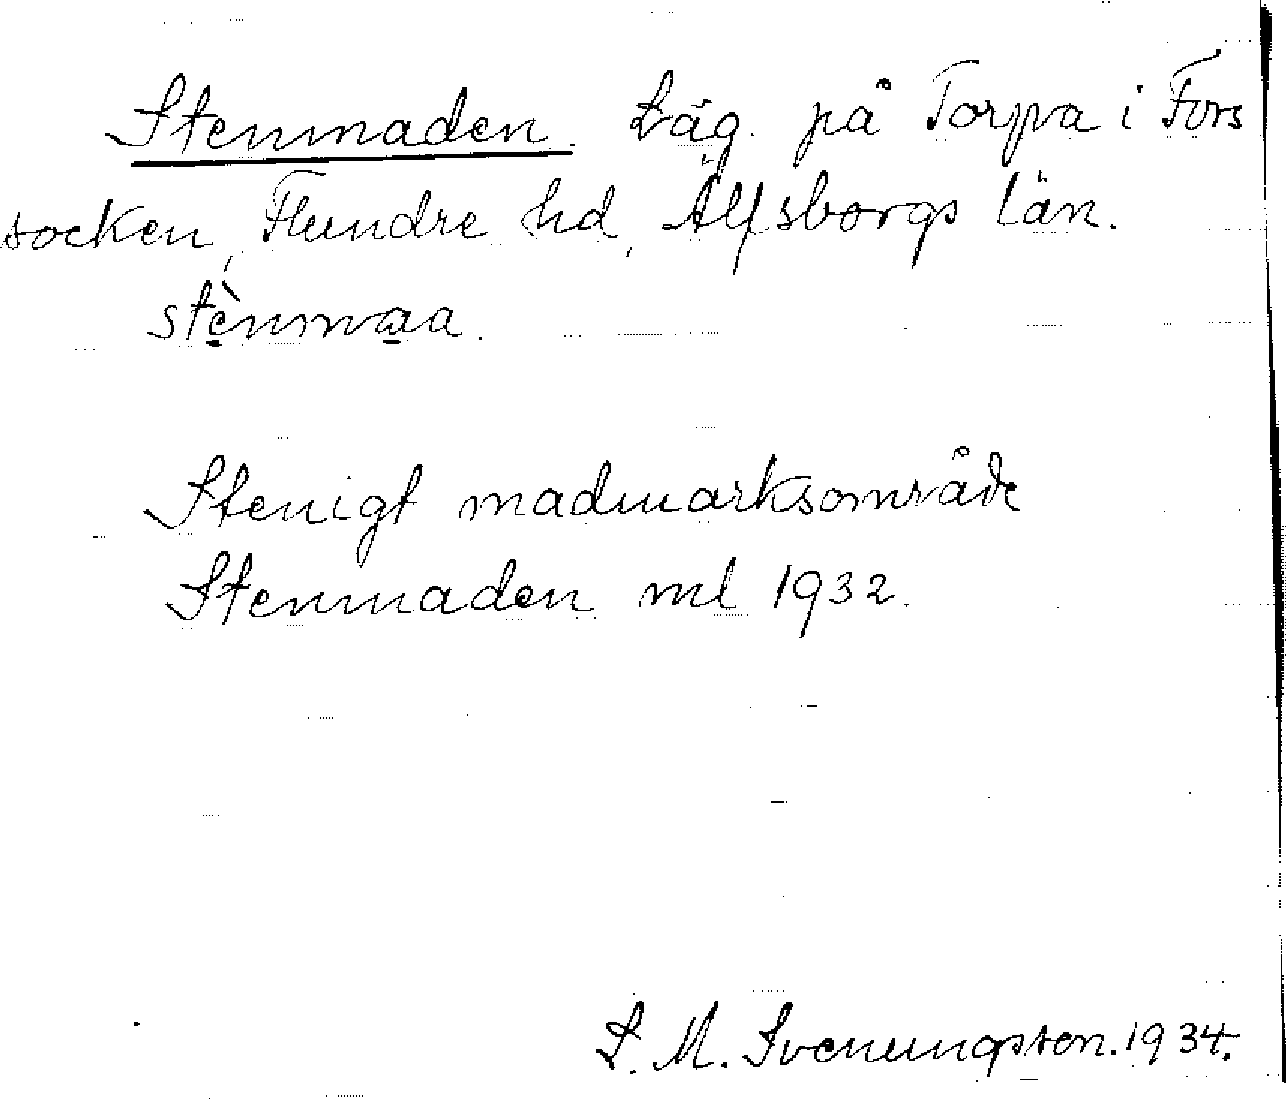 Stenmaden. Läg. på Torpa i Fors
socken, Flundre hd, Älfsborgs län.
stènmaa.
Stenigt madmarksområde
Stenmaden ml 1932.
S. M. Svenungsson. 1934.